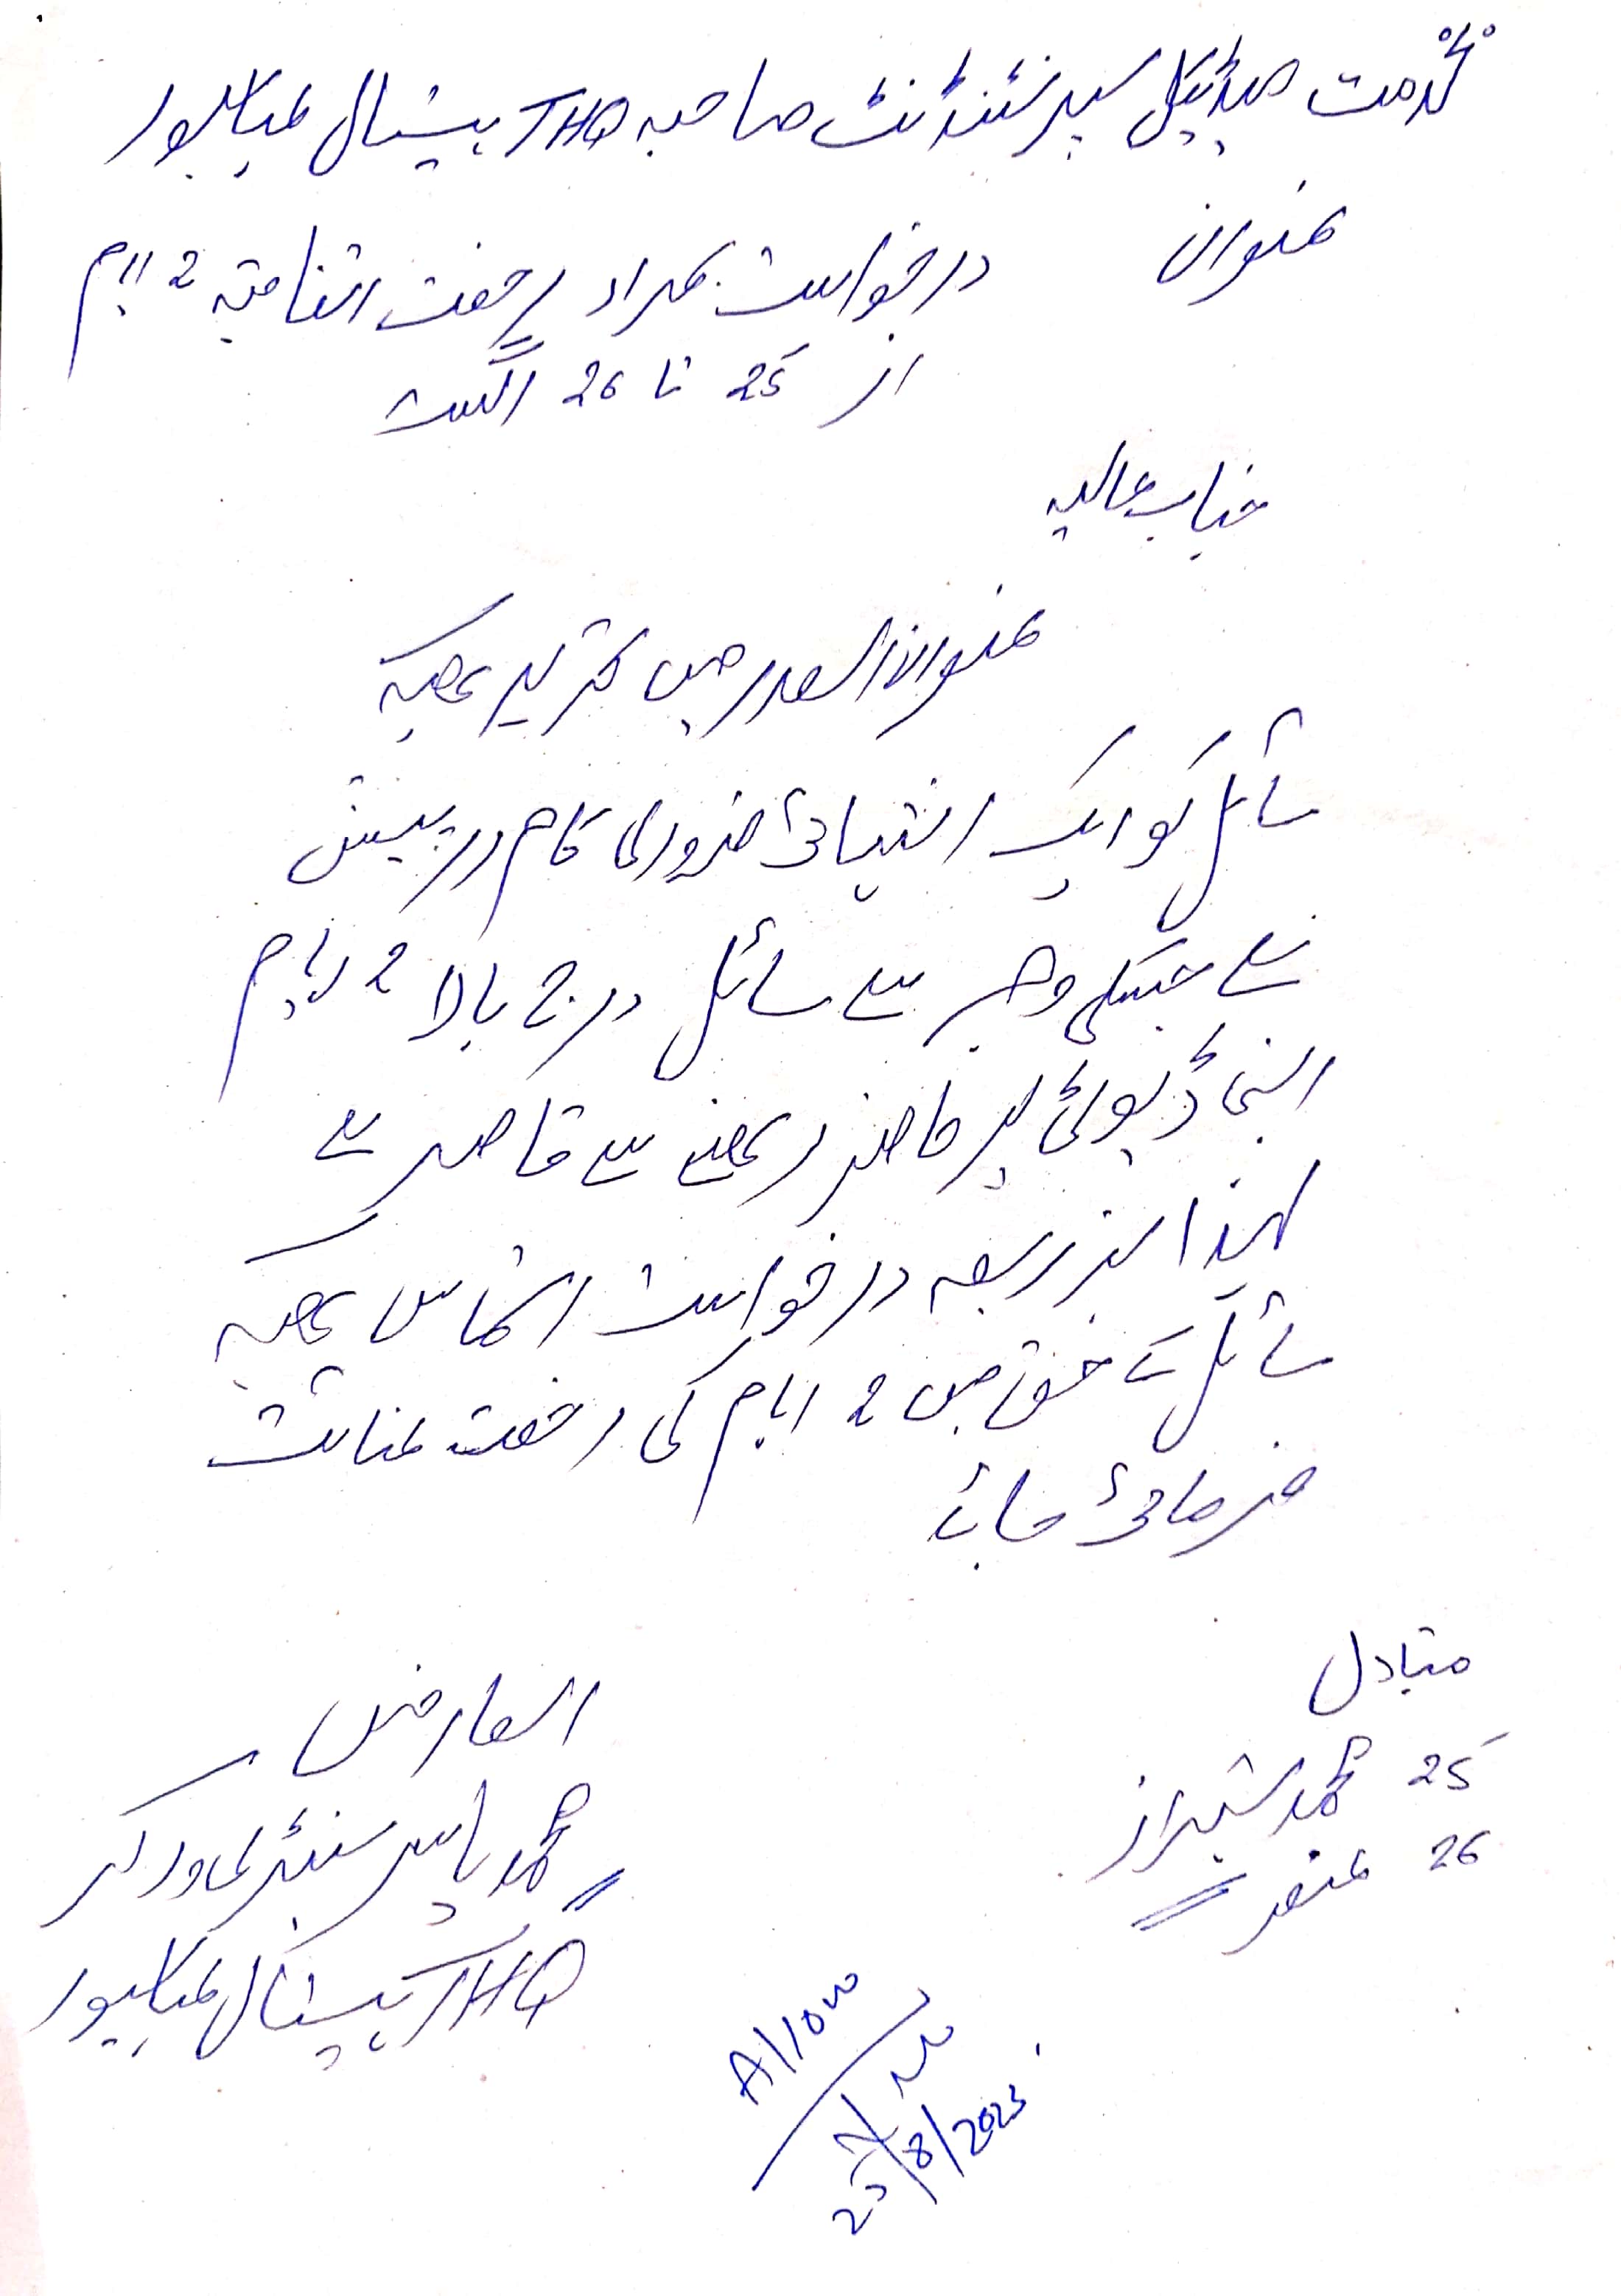 بخدمت میڈیکل سپرنٹنڈنٹ صاحبہ THQ ہسپتال
عنوان درخواست بمراد رخصت اتفاقیہ 2 ایام
از 25 تا 26 اگست
جناب عالیہ
عنوان الصدر میں تحریر ہے کہ
سائل کو ایک انتہائی ضروری کام درپیش
ہے جسکی وجہ سے سائل درج بالا 2 ایام
اپنی ڈیوٹی پر حاضر رہنے سے قاصر ہے
لہذا بذریعہ درخواست التماس ہے کہ
سائل کے حق میں 2 ایام کی رخصت عنائت
فرمائی جائے
متبادل
25 محمد شیراز
26 غضنفر
العارض
محمد یاسر سینٹری ورکر
THQ ہسپتال
Allow
25/8/2023